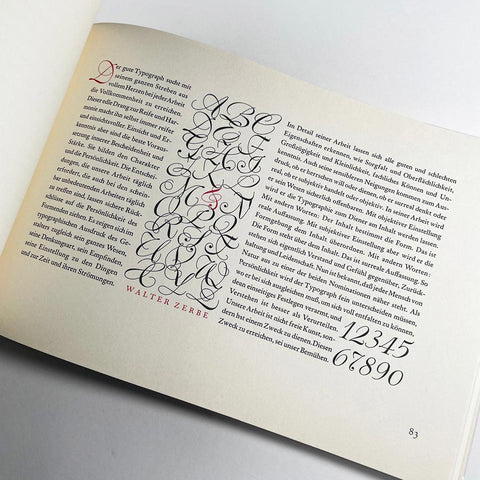 Der gute Typograph sucht mit
seinem ganzen Streben aus
vollem Herzen bei jeder Arbeit
die Vollkommenheit zu erreichen.
Dieser edle Drang zur Reife und Har-
monie macht ihn selbst immer reifer
und einsichtsvoller. Einsicht und Er-
kenntnis aber sind die beste Voraus-
setzung innerer Bescheidenheit und
Stärke. Sie bilden den Charakter
und die Persönlichkeit. Die Entschei-
dungen, die unsere Arbeit täglich
erfordert, die auch bei den schein-
bar unbedeutenden Arbeiten täglich
zu treffen sind, lassen sichere Rück-
schlüsse auf die Persönlichkeit des
einzelnen ziehen. Es zeigen sich im
typographischen Ausdruck des Ge-
stalters zugleich sein ganzes Wesen,
seine Denkungsart, sein Empfinden,
seine Einstellung zu den Dingen
und zur Zeit und ihren Strömungen.
ABC
&
WALTER ZERBE
Im Detail seiner Arbeit lassen sich alle guten und schlechten
Eigenschaften erkennen, wie Sorgfalt und Oberflächlichkeit,
Großzügigkeit und Kleinlichkeit, fachliches Können und Un-
kenntnis. Auch seine sensibleren Neigungen kommen zum Aus-
druck, ob er herrschen will oder dienen, ob er surreal denkt oder
real, ob er subjektiv handelt oder objektiv. In seiner Arbeit wird
er sein Wesen sichtlich offenbaren. Mit objektiver Einstellung
wird er die Typographie zum Diener am Inhalt werden lassen.
Mit andern Worten: Der Inhalt bestimmt die Form. Das ist
reale Auffassung. Mit subjektiver Einstellung aber wird er die
Formgebung dem Inhalt überordnen. Mit andern Worten:
Die Form steht über dem Inhalt. Das ist surreale Auffassung. So
stehen sich eigentlich Verstand und Gefühl gegenüber, Zurück-
haltung und Leidenschaft. Nun ist bekannt, daß jeder Mensch von
Natur aus zu einer der beiden Nominationen näher steht. Als
Persönlichkeit wird der Typograph fein unterscheiden müssen,
wo er bei sich ausgleichen muß, um sich voll entfalten zu können,
denn einseitiges Festlegen verarmt, und
Verstehen ist besser als Verurteilen.
Unsere Arbeit ist nicht freie Kunst, son-
dern hat einem Zweck zu dienen. Diesen
Zweck zu erreichen, sei unser Bemühen.
12345
67890
83